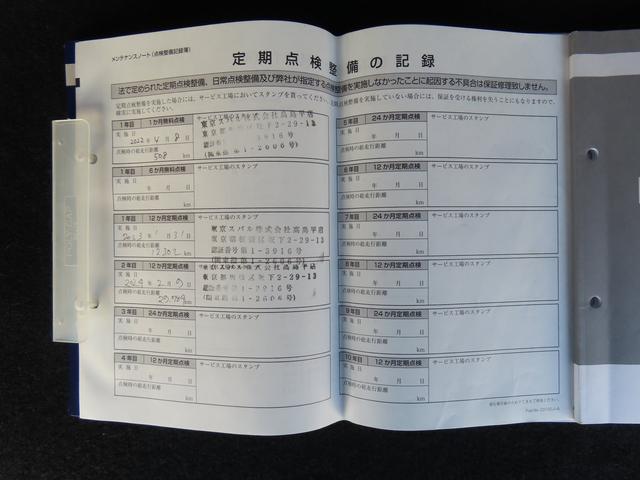 メンテナンスノート(点検整備記録簿)
定期点検整備の記録
法で定められた定期点検整備、日常点検整備及び弊社が指定する点検整備を実施しなかったことに起因する不具合は保証修理致しません。
定期点検整備を実施した場合には、サービス工場においてスタンプを貰ってください。
確実に実施してください。
整備を実施していない場合には、保証を受ける権利を失うこともありますので、
1年目 1か月無料点検 サービス工場のスタンプ
実施日
2022年 4月 8日
点検時の総走行距離
508 km
東京都板橋区坂下2-29-13
1年目 6か月無料点検 サービス工場のスタンプ
実施日
年 月 日
点検時の総走行距離
km
1年目 12か月定期点検 サービス工場のスタンプ
実施日
2023年 1月 31日
点検時の総走行距離
km
東京スバル株式会社高島平店
東京都板橋区坂下2-29-13
認証番号第1-3916号
(関東指第1-2606号)
2年目 12か月定期点検
実施日
2024年 2月
点検時の総走行距離
km
東京都板橋区坂下2-29-13
認証番号第1-3916号
(関東指第1-2606号)
3年目 24か月定期点検 サービス工場のスタンプ
実施日
年 月 日
点検時の総走行距離
km
4年目 12か月定期点検 サービス工場のスタンプ
実施日
年 月 日
点検時の総走行距離
km
5年目 24か月定期点検 サービス工場のスタンプ
実施日
年 月 日
点検時の総走行距離
km
6年目 12か月定期点検 サービス工場のスタンプ
実施日
年 月 日
点検時の総走行距離
km
7年目 24か月定期点検 サービス工場のスタンプ
実施日
年 月 日
点検時の総走行距離
km
8年目 12か月定期点検 サービス工場のスタンプ
実施日
年 月 日
点検時の総走行距離
km
9年目 24か月定期点検 サービス工場のスタンプ
実施日
年 月 日
点検時の総走行距離
km
10年目 12か月定期点検 サービス工場のスタンプ
実施日
年 月 日
点検時の総走行距離
km